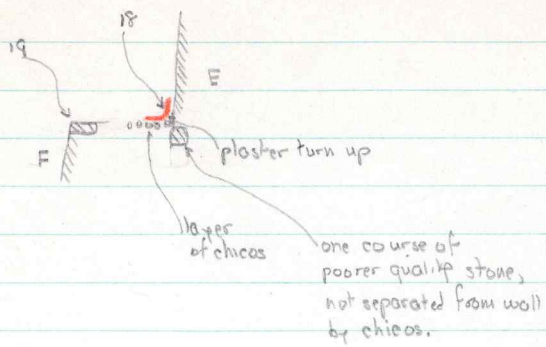 18
19
E
F
plaster turn up
layer
of chicos
one course of
poorer quality stone,
not separated from wall
by chicos.